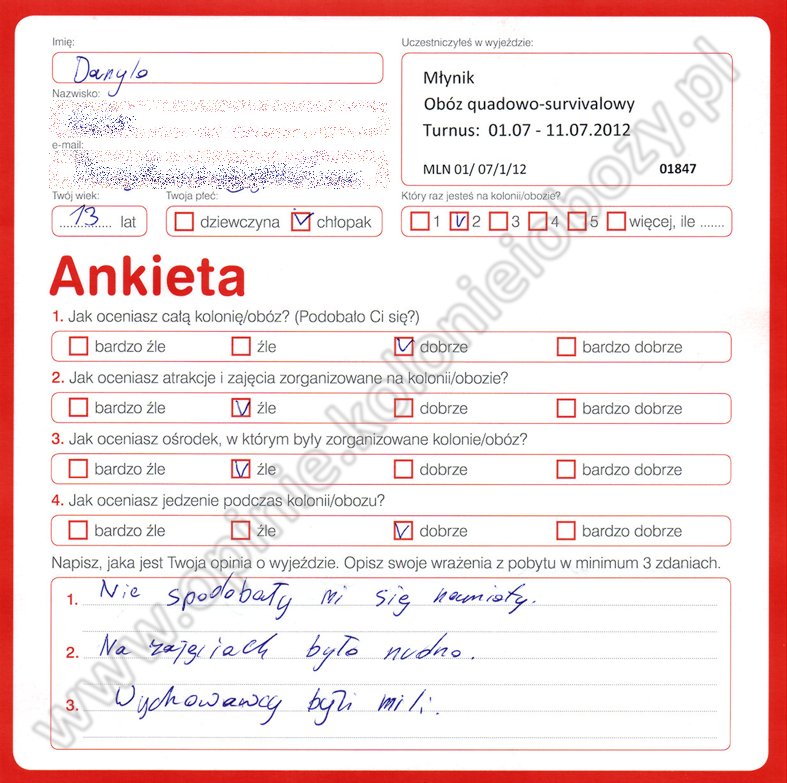 Imię:
Danylo
Nazwisko:
e-mail:
Twój wiek:
13 lat
Twoja płeć:
dziewczyna chłopak
Uczestniczyłeś w wyjeździe:
Młynik
Obóz quadowo-survivalowy
Turnus: 01.07 - 11.07.2012
MLN 01/ 07/1/12 01847
Który raz jesteś na kolonii/obozie?
1 2 3 4 5 więcej, ile .......
Ankieta
1. Jak oceniasz całą kolonię/obóz? (Podobało Ci się?)
bardzo źle źle dobrze bardzo dobrze
2. Jak oceniasz atrakcje i zajęcia zorganizowane na kolonii/obozie?
bardzo źle źle dobrze bardzo dobrze
3. Jak oceniasz ośrodek, w którym były zorganizowane kolonie/obóz?
bardzo źle źle dobrze bardzo dobrze
4. Jak oceniasz jedzenie podczas kolonii/obozu?
bardzo źle źle dobrze bardzo dobrze
Napisz, jaka jest Twoja opinia o wyjeździe. Opisz swoje wrażenia z pobytu w minimum 3 zdaniach.
1. Nie spodobały mi się namioty.
2. Na zajęciach było nudno.
3. Wychowawcy byli mili.
www.opinie.kolonieiobozy.pl